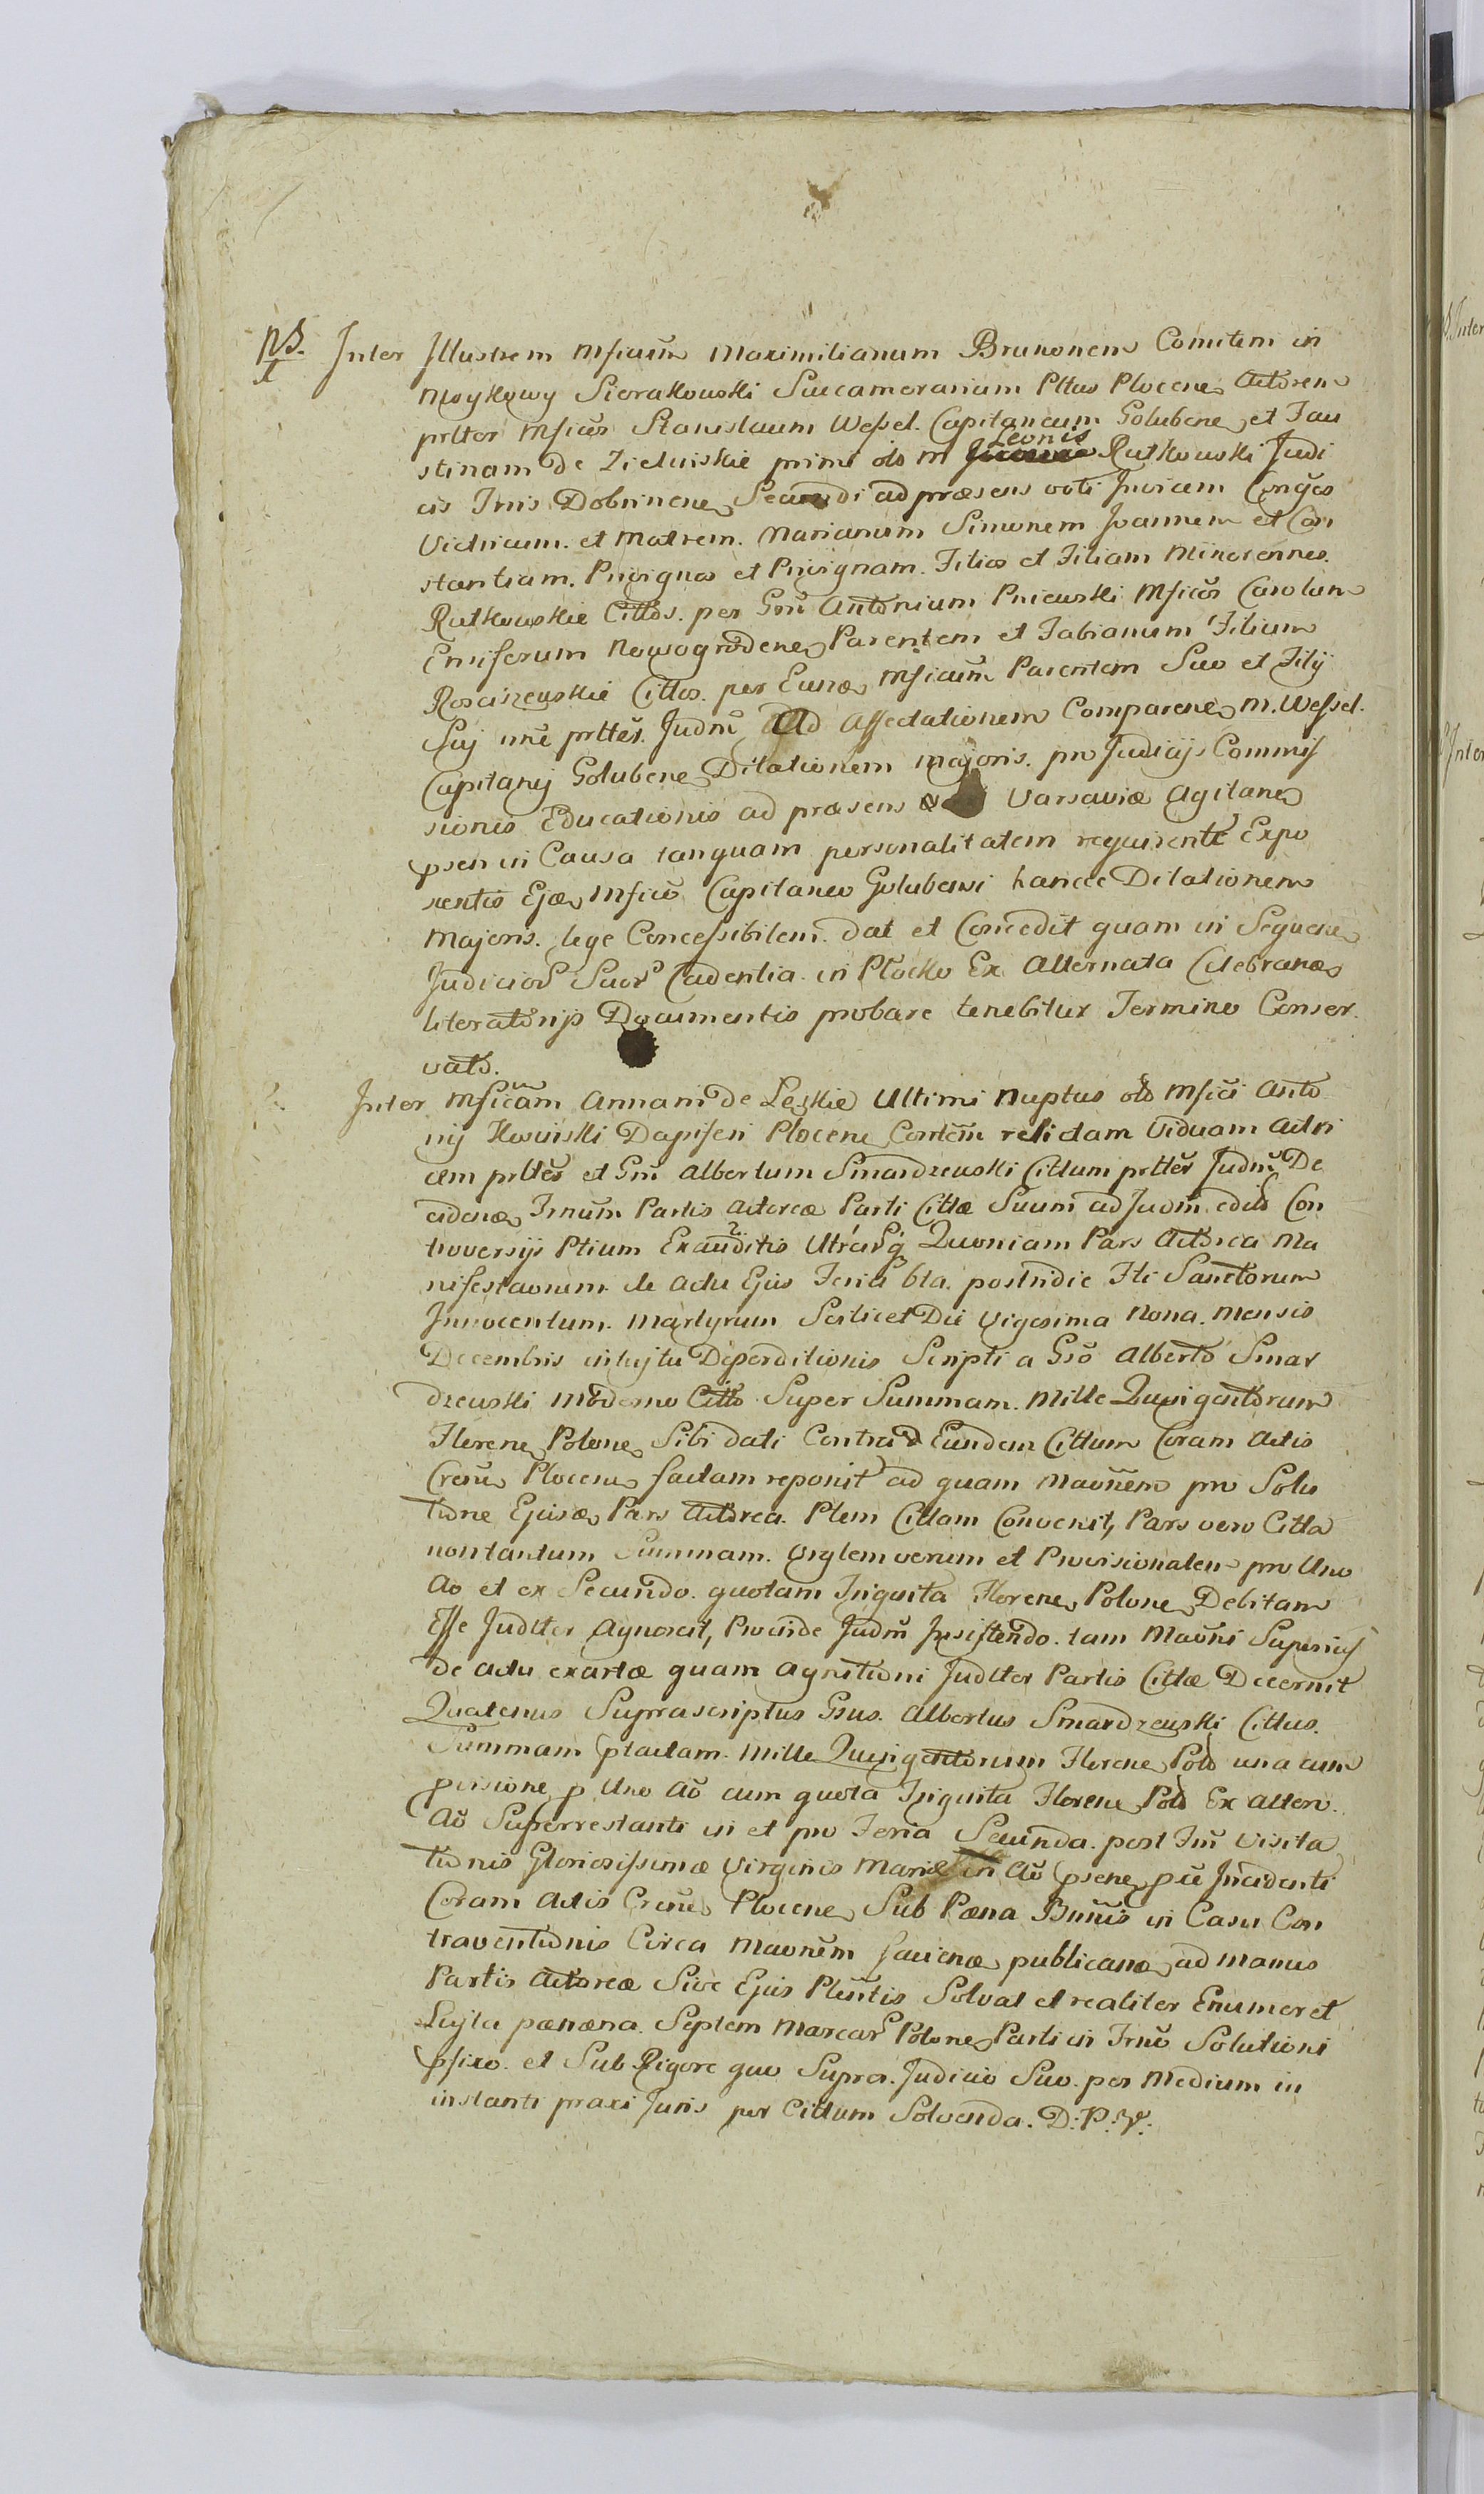 ps. Inter Illustrem Mficum Maximilianum Brunonem Comitem in
Msykowy Sierakowski Succamerarium Pltus Plocene Actorem
prlter Mficos Stanislaum Wessel. Capitaneum Golubene, et Fau
stinam de Zieluiskie primi olo M Leonis Rutkowski Judi
cis Trris Dobrinene, Secundi ad præsens voti Invicem Conjges
Victricum. et Matrem. Marianum Simonem Joannem et Con
stantiam. Privignos et Privignam. Filios et Filiam Minorennes.
Rutkowskie Cittos. per Gsm Antonium Pniewski Mficos Carolum
Ensiferum Nowogrodene, Parentem et Fabianum Filium
Rosciszewskie Cittos. per Eunde, Mficum Parentem Suo et Filij
Suj nne prltes. Judm Ad Affectationem Comparene, M. Wessel.
Capitanij Golubene, Dilationem majoris. pro Judicijs Commis
sionis Educationis ad præsens Varsaviæ Agitane,
psen in Causa tanquam personalitatem requirente Expo
nentis Ejde, Mfico Capitaneo Golubensi hancce Dilationem
Majoris. lege Concessibilem. dat et Concedit quam in Sequene,
Judicior Suor Cadentia in Plocko Ex Alternata Celebrande,
literatorijs Documentis probare tenebitur Termino Conser
vato.
Inter Mficam Annam de Leskie Ultimi Nuptus olo Mfici Anto
nij Dapiferi Plocene, Contem relictam Viduam Actri
cem prltes et Gsm Albertum Smardzewski Cittum prltes Judm De
cidene, Trnum Partis Actoreæ Parti Cittæ Suum ad Judm editis Con
troversijs Ptium Exauditis Utrarq Quoniam Pars Actorea Ma
nifestaonem de Actu Ejus Feria 6ta. postridie Fti Sanctorum
Innocentum. Martyrum Scilicet Die Vigesima Nona. Mensis
Decembris intujtu Deperditionis Scripti a Gso Alberto Smar
dzewski Moderno Citto Super Summam. Mille Quingentorum
Florene, Polone, Sibi dati Contra Eundem Cittum Coram Actis
Crene, Plocene, factam reponit ad quam Maonem pro Solu
tione Ejusde, Pars Actorea. Ptem Cittam Convenit, Pars vero Citta
non tantum Summam. Orglem verum et Provisionalem pro Uno
Ao et ex Secundo. quotam Triginta Florene, Polone, Debitam
Esse Judlter Agnoscit, Proinde Judm Insistendo. tam Maoni Superius
de Actu exartæ quam Agnitioni Judlter Partis Cittæ Decernit
Quatenus Suprascriptus Gsus. Albertus Smardzewski Cittus.
Summam ptactam. Mille Quingentorum Florene, Polo una cum
pvisione p Uno Ao cum quota Triginta Florene, Polo Ex Altero.
Ao Superrestanti in et pro Feria Secunda. post Ftm Visita
tionis Gloriosissimæ Virginis Mariæ in Ao psene, pte Incidenti
Coram Actis Crene, Plocene, Sub Pæna Bnnis in Casu Con
traventionis Circa Maonem faciende, publicande, ad manus
Partis Actoreæ Sive Ejus Plentis Solvat et realiter Enumeret
Lujta pænæna. Septem Marcar Polone, Parti in Trno Solutioni
pfixo. et Sub Rigore quo Supra. Judicio Suo. per Medium in
instanti praxi Juris per Cittum Solvenda. D: P: V: